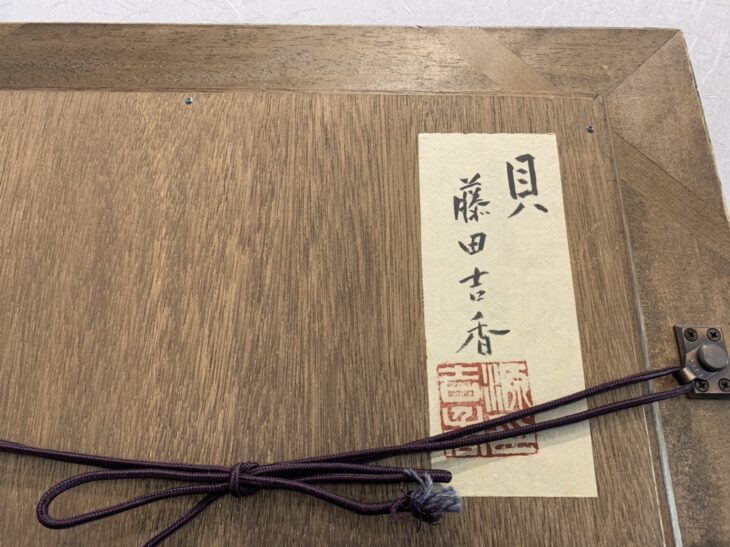 貝
藤田吉香